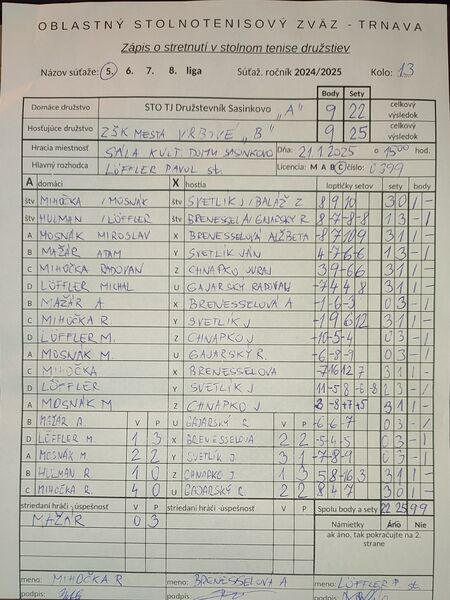 OBLASTNÝ STOLNOTENISOVÝ ZVÄZ - TRNAVA
Zápis o stretnutí v stolnom tenise družstiev
Názov súťaže: 5. 6. 7. 8. liga Súťaž. ročník 2024/2025 Kolo: 13
Body Sety
Domáce družstvo STO TJ Družstevník Sasinkovo „A" 9 22 celkový výsledok
Hosťujúce družstvo ZŠK MESTA VRBOVÉ „B" 9 25 celkový výsledok
Hracia miestnosť SÁLA KULT. DOMU SASINKOVO Dňa: 21.1.2025 o 15 00 hod.
Hlavný rozhodca LÖFFLER PAVOL st. Licencia: M A B C číslo: 0399
A domáci X hostia loptičky setov sety body
štv MIHOČKA / MOSNÁK štv SVETLÍK J / BALÁŽ Z 8 9 10 3 0 1 -
štv HULMAN / LÖFFLER štv BRENESSELA / GAJARSKÝ R 8 -7 -8 -8 1 3 - 1
A MOSNÁK MIROSLAV X BRENESSELOVÁ ALŽBETA -8 7 10 9 3 1 1 -
B MAŽÁR ADAM Y SVETLÍK JÁN 4 -7 -6 -6 1 3 - 1
C MIHOČKA RADOVAN Z CHNAPKO JURAJ 3 9 -6 6 3 1 1 -
D LÖFFLER MICHAL U GAJARSKÝ RADOVAN -7 4 4 8 3 1 1 -
B MAŽÁR A X BRENESSELOVÁ A -1 -6 -3 0 3 - 1
C MIHOČKA R. Y SVETLÍK J -1 9 6 12 3 1 1 -
D LÖFFLER M. Z CHNAPKO J -10 -5 -4 0 3 - 1
A MOSNÁK M. U GAJARSKÝ R. -6 -8 -9 0 3 - 1
C MIHOČKA X BRENESSELOVA -7 16 12 7 3 1 1 -
D LÖFFLER Y SVETLÍK J 11 -5 8 -6 -8 2 3 - 1
A MOSNÁK M Z CHNAPKO J 3 1 1 -
B MAŽÁR A. V P U GAJARSKÝ R. V P -6 -6 -7 0 3 - 1
D LÖFFLER M. 1 3 X BRENESSELOVA 2 2 -5 -4 -5 0 3 - 1
A MOSNÁK M 2 2 Y SVETLÍK J. 3 1 -7 -8 -9 0 3 - 1
B HULMAN R. 1 0 Z CHNAPKO J 1 3 5 8 -16 3 3 1 1 -
C MIHOČKA R. 4 0 U GAJARSKÝ R. 2 2 8 4 7 3 0 1 -
striedaní hráči -úspešnosť V P striedaní hráči -úspešnosť V P Spolu body a sety 22 25 9 9
MAŽÁR 0 3 Námietky Áno Nie
ak áno, tak pokračujte na 2. strane
meno: MIHOČKA R meno: BRENESSELOVA A meno: LÖFFLER P st.
podpis: podpis: podpis: